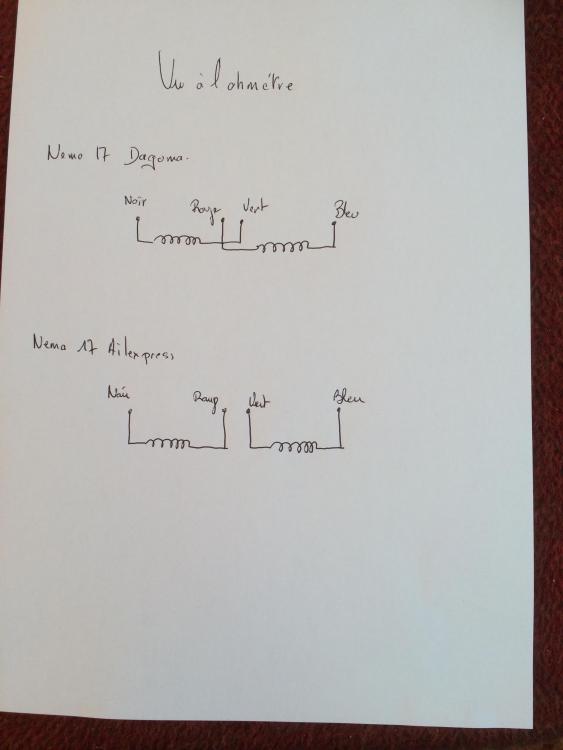 Vu à l'ohmètre
Nema 17 Dagoma.
Noir Rouge Vert Bleu
Nema 17 Ailexpress
Noir Roug Vert Bleu